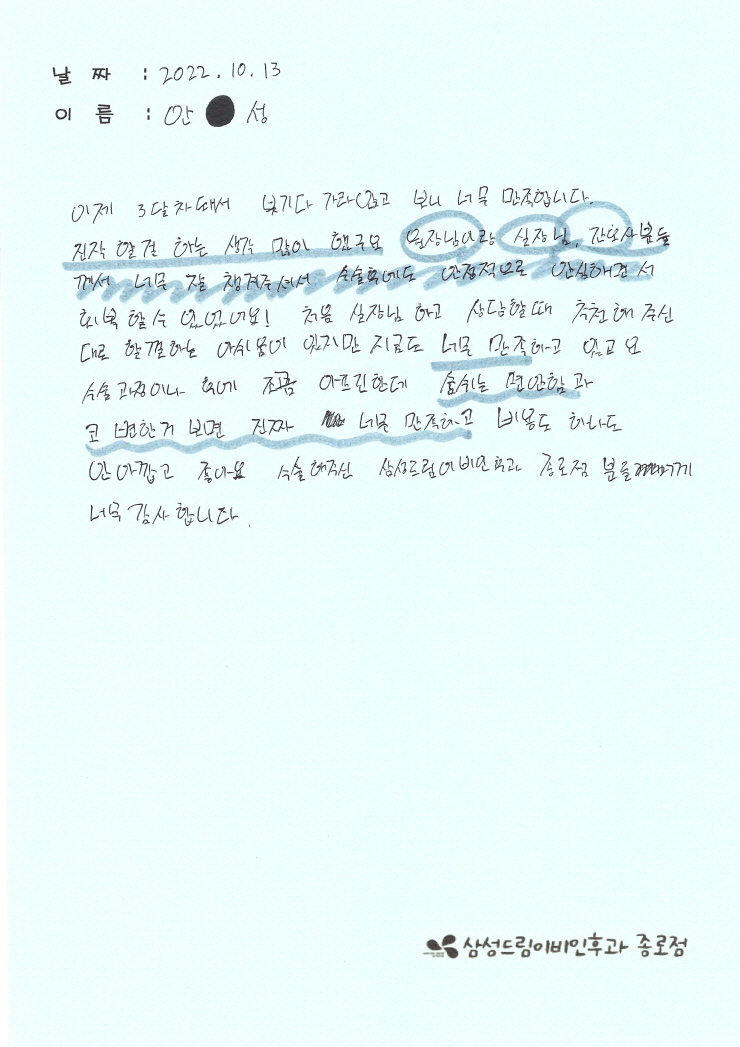 날 짜 : 2022.10.13
이 름 : 안 성
이제 3달차 돼서 붓기다 가라앉고 보니 너무 만족합니다.
진작 할걸 하는 생각 많이 했구요 원장님이랑 실장님, 간호사분들
께서 너무 잘 챙겨주셔서 수술후에도 안정적으로 안심하면서
회복 할 수 있었어요! 처음 실장님 하고 상담할때 추천해 주신
대로 할껄하는 아쉬움이 있지만 지금도 너무 만족하고 있고요
수술과정이나 후에 조큼 아프긴한데 숨쉬는 편안함과
코 변한거 보면 진짜 너무 만족하고 비용도 하나도
안아깝고 좋아요 수술해주신 삼성드림이비인후과 종로점 분들께
너무 감사합니다.
삼성드림이비인후과 종로점